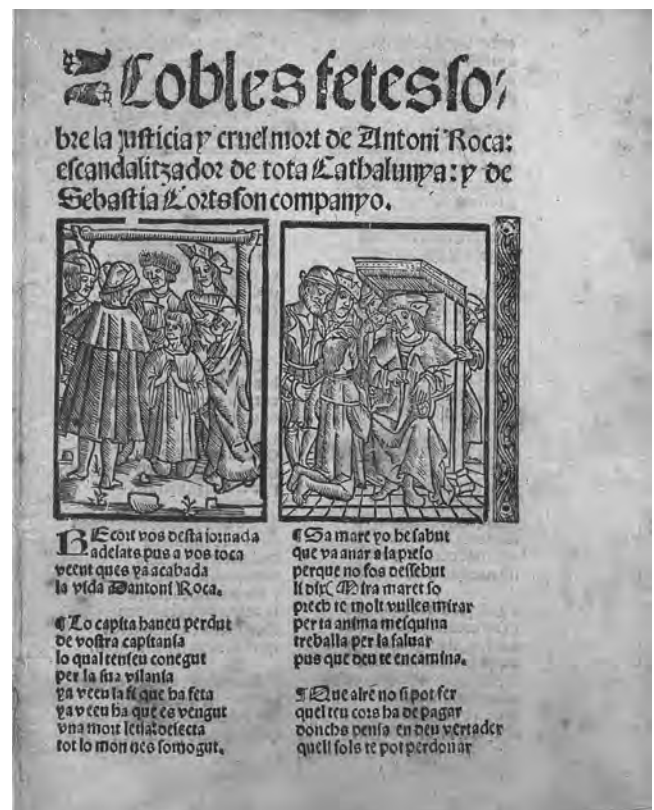 Cobles fetes so/
bre la justicia y cruel mort de Antoni Roca:
escandalitzador de tota Cathalunya: y de
Sebastia Corts son companyo.
REcort vos desta jornada
adelats pus a vos toca
veent ques ya acabada
la vida Dantoni Roca.
¶ Lo capita haueu perdut
de vostra capitania
lo qual tenieu conegut
per la sua vilania
ya veeu la fi que ha feta
ya veeu ha que es vengut
vna mort letja: desecta
tot lo mon nes somogut.
¶ Sa mare yo he sabut
que va anar a la preso
perque no fos dessebut
li dix Mira maret so
prech te molt vulles mirar
per ta anima mesquina
treballa per la saluar
pus que deu te encamina.
¶ Que alre no si pot fer
quel teu cors ha de pagar
donchs pensa en deu vertader
quell sols te pot perdonar